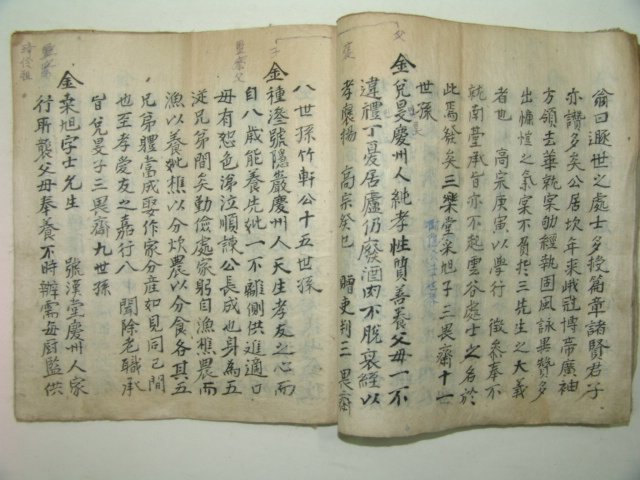 翁曰遯世之處士多授簡章諸賢君子
亦讚多矣公居坎年乘峨冠博帶廣袖
方領去華就實勵經執固風詠異贊多
出慷慨之氣案不負於三先生之大義
者也 高宗庚寅以學行 徵參奉不
就南臺承旨亦不起雲谷處士之名於
此焉發矣三樂堂采旭子三畏齋十一
世孫
父
金兌旻慶州人純孝性質善養父母一不
違禮丁憂居廬仍廢酒肉不脫衰絰以
孝襄揚 高宗癸巳 贈吏判三畏齋
八世孫竹軒公十五世孫
子
金種燮號隱巖慶州人天生孝友之心而
自八歲能養先妣一不離側供進適口
母有怨色涕泣順諫公長成也身為五
從兄弟間矣勤儉處家躬自漁樵農而
漁以養妣樵以分炊農以分食各其五
兄弟體當成娶作家分産如見同己間
也至孝愛友之嘉行八 聞除老職承
旨兌旻子三畏齋九世孫
金燊旭字士先生 號漢堂慶州人家
行聯襲父母奉養不時辦需每厨監供